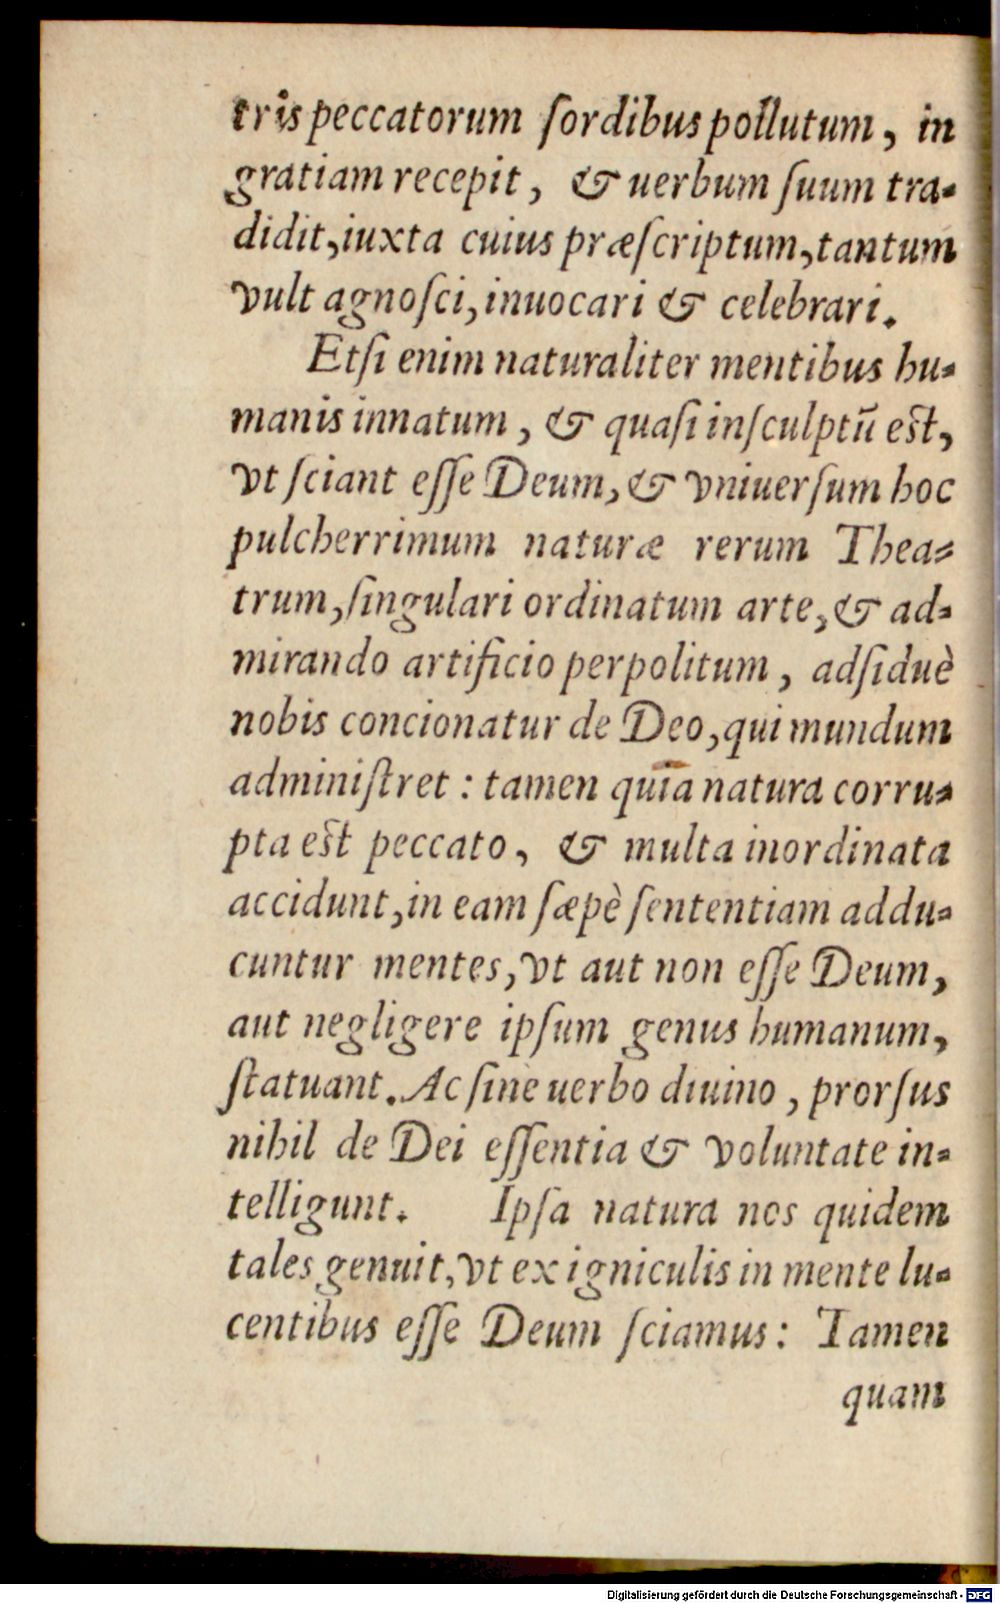 tris peccatorum ſordibus pollutum, in
gratiam recepit, & uerbum ſuum tra-
didit, iuxta cuius præſcriptum, tantum
vult agnoſci, inuocari & celebrari.
Etſi enim naturaliter mentibus hu-
manis innatum, & quaſi inſculptū est,
vt ſciant eſſe Deum, & vniuerſum hoc
pulcherrimum naturæ rerum Thea-
trum, ſingulari ordinatum arte, & ad-
mirando artificio perpolitum, adſiduè
nobis concionatur de Deo, qui mundum
adminiſtret: tamen quia natura corru-
pta est peccato, & multa inordinata
accidunt, in eam ſæpè ſententiam addu-
cuntur mentes, vt aut non eſſe Deum,
aut negligere ipſum genus humanum,
ſtatuant. Ac ſine uerbo diuino, prorſus
nihil de Dei eſſentia & voluntate in-
telligunt. Ipſa natura nos quidem
tales genuit, vt ex igniculis in mente lu-
centibus eſſe Deum ſciamus: Tamen
quam
Digitalisierung gefördert durch die Deutsche Forschungsgemeinschaft - DFG